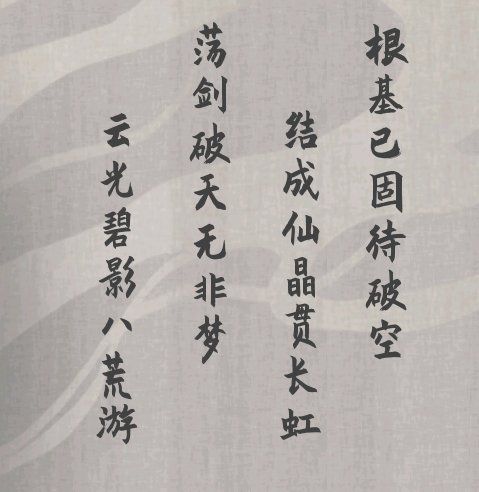 根基已固待破空
结成仙晶贯长虹
荡剑破天无非梦
云光碧影八荒游